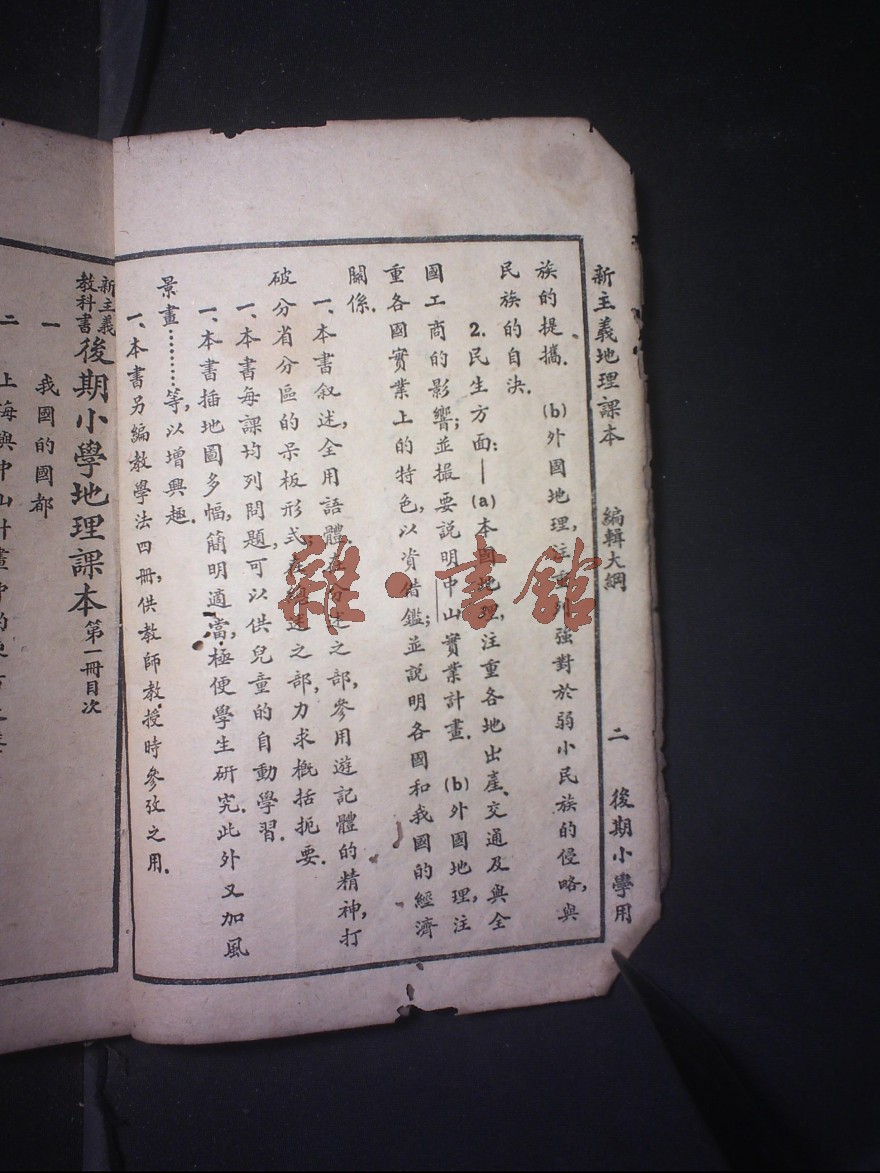 新主義地理課本 編輯大綱 二 後期小學用
族的提攜. (b)外國地理,注重列強對於弱小民族的侵略,與
民族的自決.
2.民生方面:—(a)本國地理,注重各地出產、交通及與全
國工商的影響;並撮要說明中山實業計畫. (b)外國地理,注
重各國實業上的特色,以資借鑑;並說明各國和我國的經濟
關係.
一、本書叙述,全用語體.在分述之部,參用遊記體的精神,打
破分省分區的呆板形式;在總述之部,力求概括扼要.
一、本書每課均列問題,可以供兒童的自動學習.
一、本書插地圖多幅,簡明適當,極便學生研究.此外又加風
景畫………等,以增興趣.
一、本書另編教學法四冊,供教師教授時參攷之用.
新主義
教科書
後期小學地理課本 第一冊目次
一 我國的國都
二 上海與中山計畫中的東方大港
雜·書館